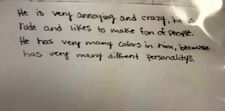 He is very annoying and crazy, he is
rude and likes to make fun of people.
He has very many colors in him, because
has very many diffrent personalitys.